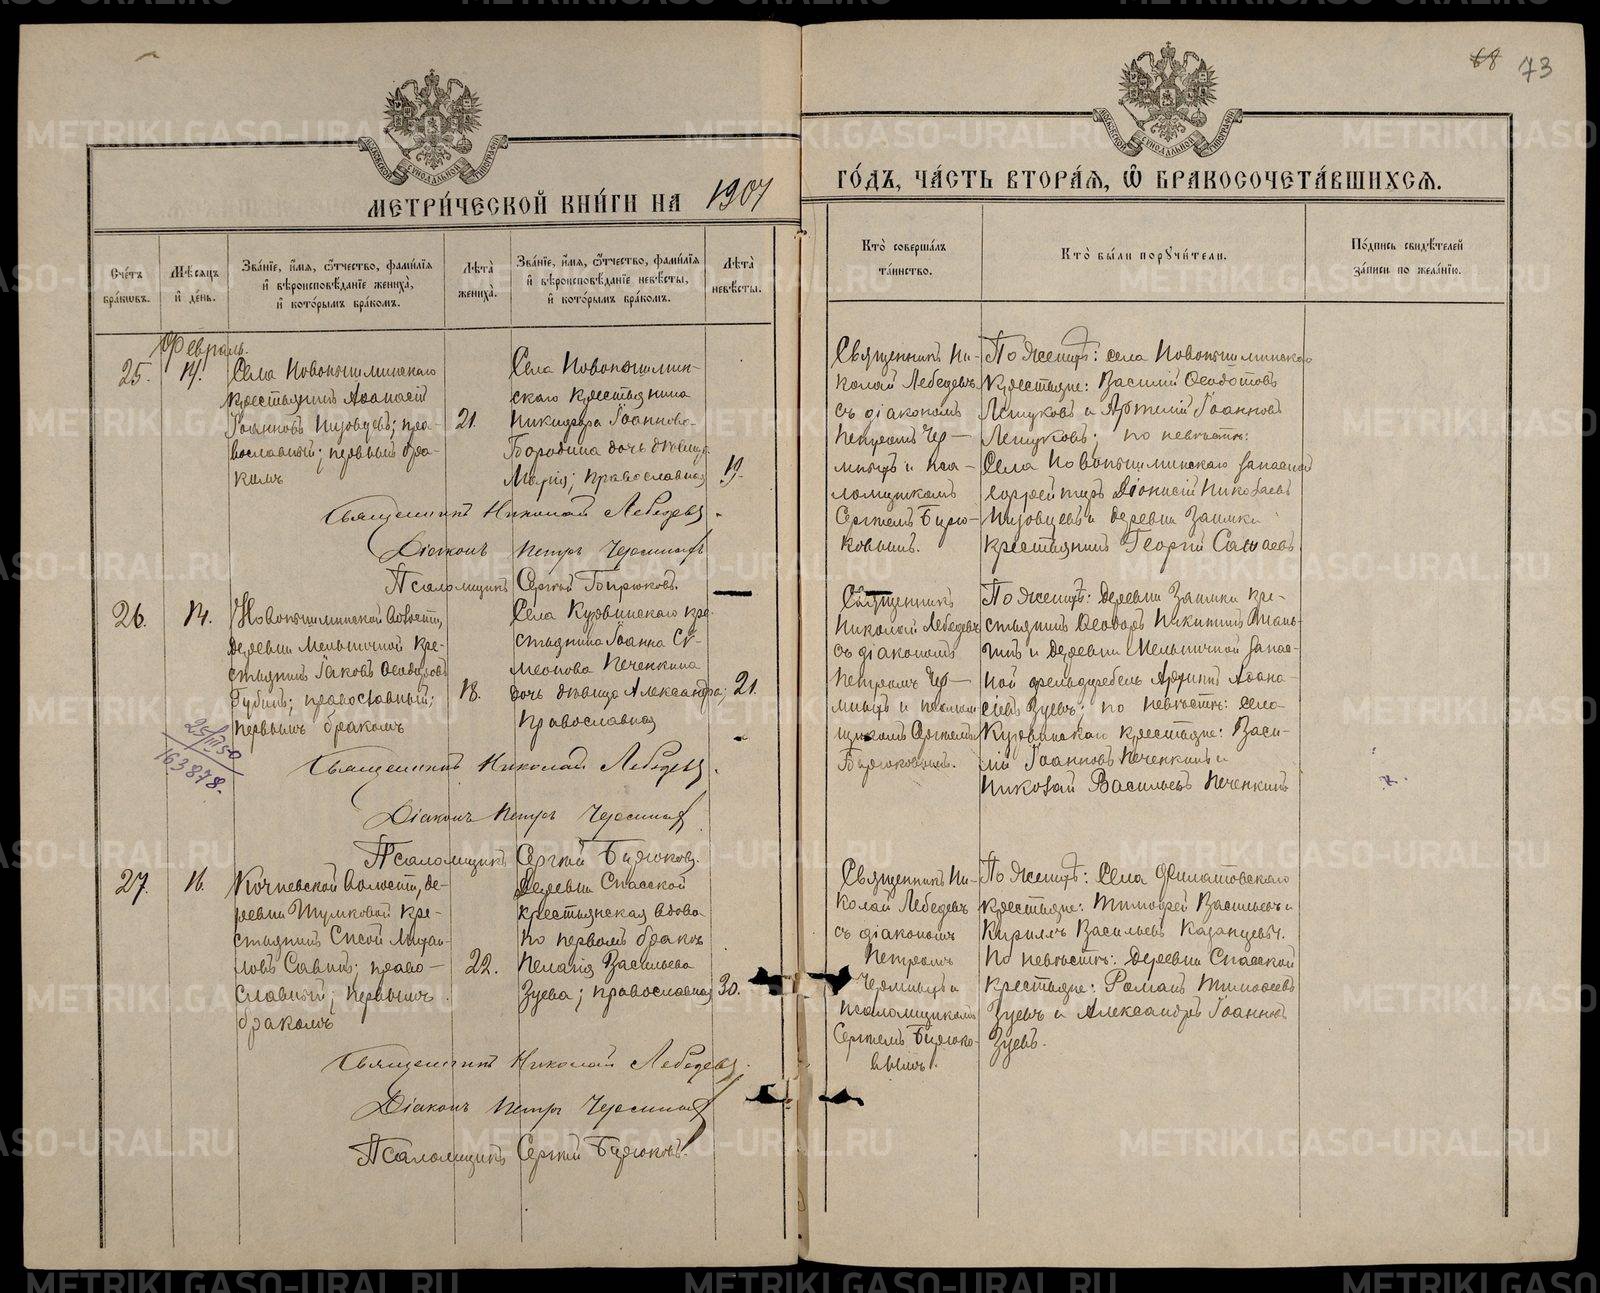 68 73
МЕТРИ́ЧЕСКОЙ КНИ́ГИ НА 1907
ГО́ДЪ, ЧА́СТЬ ВТОРА́Я, Ѿ БРАКОСОЧЕТА́ВШИХСЯ.
Сче́тъ бра́ковъ.
Мѣ́сяцъ и́ де́нь.
Зва́нїе, и́мя, ѻ́тчество, фами́лїя
и́ вѣроисповѣ́данїе жениха̀,
и́ кото́рымъ бра́комъ.
Лѣ́та жениха̀.
Зва́нїе, и́мя, ѻ́тчество, фами́лїя
и́ вѣроисповѣ́данїе невѣ́сты,
и́ кото́рымъ бра́комъ.
Лѣ́та невѣ́сты.
Кто̀ соверша́лъ
та́инство.
Кто̀ бы́ли порꙋчи́тели.
По́дпись свидѣ́телей
за́писи по жела́нїю.
Февраль.
25.
14.
Села Новопышминскаго
крестьянинъ Аѳанасій
Іоанновъ Шуовцевъ; пра-
вославный; первымъ бра-
комъ
21.
Села Новопышмин-
скаго крестьянина
Никифора Іоаннова
Бородина дочь дѣвица
Марія; православная
19.
Священникъ Ни-
колай Лебедевъ
съ діакономъ
Петромъ Чер-
мнымъ и пса-
ломщикомъ
Сергіемъ Бирю-
ковымъ.
По женихѣ: села Новопышминскаго
крестьяне: Василій Ѳеодотовъ
Лещуковъ и Артемій Іоанновъ
Лещуковъ; по невѣстѣ:
Села Новопышминскаго запасной
Діонисій Николаевъ
и деревни Заимки
крестьянинъ Георгій
Священникъ Николай Лебедевъ.
Діаконъ Петръ Чермный
Псаломщикъ Сергій Бирюковъ.
26.
14.
Новопышминской волости,
деревни Мельничной кре-
стьянинъ Іаковъ Ѳеодоровъ
Губинъ; православный;
первымъ бракомъ
18.
Села Куровинскаго кре-
стьянина Іоанна Си-
меонова Печенкина
дочь дѣвица Александра;
православная
21.
Священникъ
Николай Лебедевъ
съ діакономъ
Петромъ Чер-
мнымъ и псалом-
щикомъ Сергіемъ
Бирюковымъ.
По женихѣ: деревни Заимки кре-
стьянинъ Ѳеодоръ Никитинъ
и деревни Мельничной запас-
ной фельдфебель Аѳана-
сіевъ Зуевъ; по невѣстѣ: села
Куровинскаго крестьяне: Васи-
лій Іоанновъ Печенкинъ и
Николай Васильевъ Печенкинъ
25/III 50
163878.
Священникъ Николай Лебедевъ.
Діаконъ Петръ Чермный
Псаломщикъ Сергій Бирюковъ.
27.
16.
Кочневской волости, де-
ревни Шумковой кре-
стьянинъ Сисой Михаи-
ловъ Савинъ; право-
славный; первымъ
бракомъ
22.
Деревни Спасской
крестьянская вдова
по первомъ бракѣ
Пелагія Васильева
Зуева; православная
30.
Священникъ Ни-
колай Лебедевъ
съ діакономъ
Петромъ
Чермнымъ и
псаломщикомъ
Сергіемъ Бирюко-
вымъ.
По женихѣ: Села Филатовскаго
крестьяне: Тимоѳей Васильевъ и
Кириллъ Васильевъ Казанцевы.
По невѣстѣ: деревни Спасской
крестьяне: Романъ Тимоѳеевъ
Зуевъ и Александръ Іоанновъ
Зуевъ.
Священникъ Николай Лебедевъ.
Діаконъ Петръ Чермный
Псаломщикъ Сергій Бирюковъ.